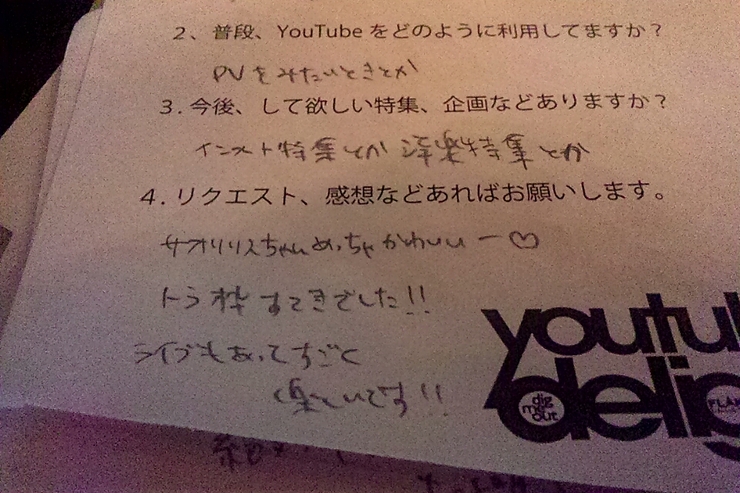 2、普段、YouTubeをどのように利用してますか？
PVをみたいときとか
3.今後、して欲しい特集、企画などありますか？
インスト特集とか 洋楽特集とか
4.リクエスト、感想などあればお願いします。
サオリリスちゃんめっちゃかわいいー♡
トラ枠すてきでした!!
ライブもあってすごく
楽しいです!!
youtu
delig
dig
me
out
FLAK